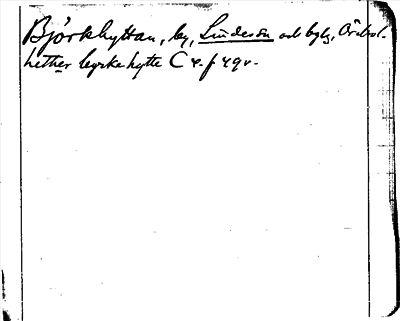 Björkhyttan, by, Lindesbn och bgln, Örebrol.
nether byrke hytte C 4. f 49v.